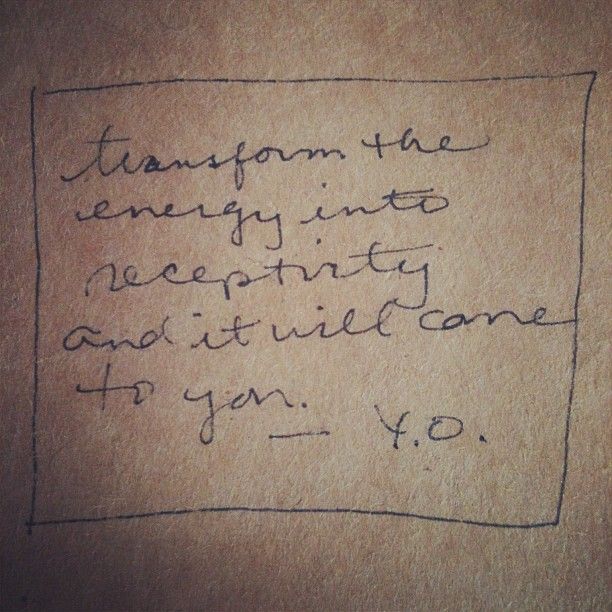 transform the
energy into
receptivity
and it will come
to you.
— Y.O.